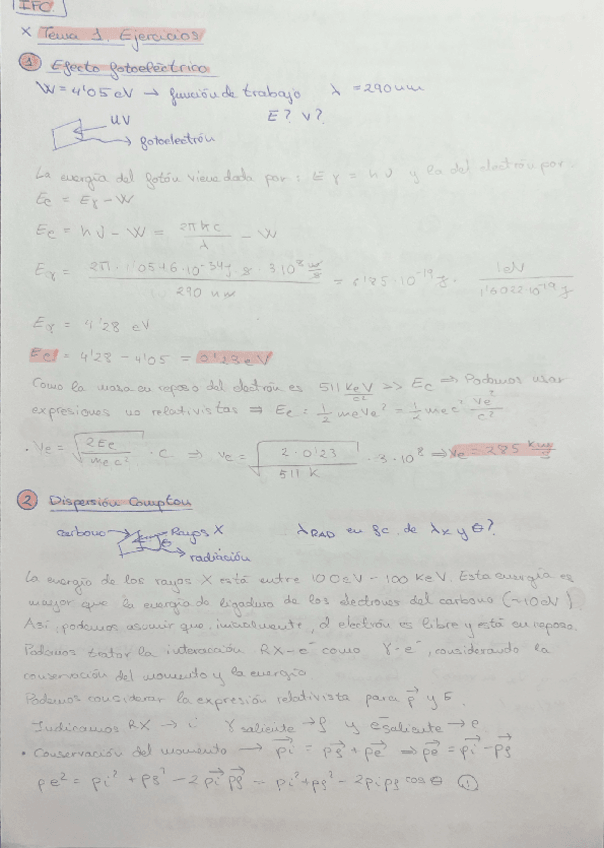 IFC.
x Tema 1. Ejercicios
1 Efecto fotoeléctrico
W = 4'05 eV → función de trabajo λ = 290 nm
E? v?
UV
fotoelectrón
La energía del fotón viene dada por: Eγ = hν y la del electrón por:
Ec = Eγ - W
Ec = hν - W = 2πħc/λ - W
Eγ = 2π · 1'0546·10^-34 J · s · 3·10^8 m/s / 290 nm = 6'85·10^-19 J · 1eV / 1'6022·10^-19 J
Eγ = 4'28 eV
Ec = 4'28 - 4'05 = 0'23 eV
Como la masa en reposo del electrón es 511 keV/c² >> Ec ⇒ Podemos usar
expresiones no relativistas ⇒ Ec = 1/2 me ve² = 1/2 me c² ve²/c²
· ve = √(2Ec / me c²) · c ⇒ ve = √(2 · 0'23 / 511 k) · 3·10^8 ⇒ ve = 285 km/s
2 Dispersión Compton
carbono Rayos X λRAD en fc. de λx y θ?
θ
radiación
La energía de los rayos X está entre 100eV - 100 KeV. Esta energía es
mayor que la energía de ligadura de los electrones del carbono (~10eV)
Así, podemos asumir que, inicialmente, el electrón es libre y está en reposo.
Podemos tratar la interacción RX-e⁻ como γ-e⁻, considerando la
conservación del momento y la energía.
Podemos considerar la expresión relativista para p⃗ y E.
Indicamos RX → i γ saliente → f y e⁻ saliente → e
• Conservación del momento → p⃗i = p⃗f + p⃗e ⇒ p⃗e = p⃗i - p⃗f
pe² = pi² + pf² - 2 p⃗i p⃗f = pi² + pf² - 2 pi pf cos θ 1